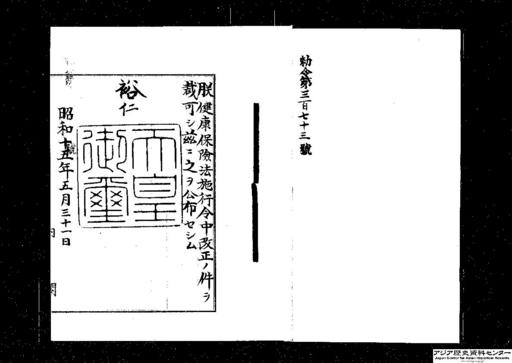 勅令第三百七十三號
朕健康保險法施行令中改正ノ件ヲ
裁可シ茲ニ之ヲ公布セシム
裕仁
天皇御璽
昭和十五年五月三十一日
アジア歴史資料センター
Japan Center for Asian Historical Records